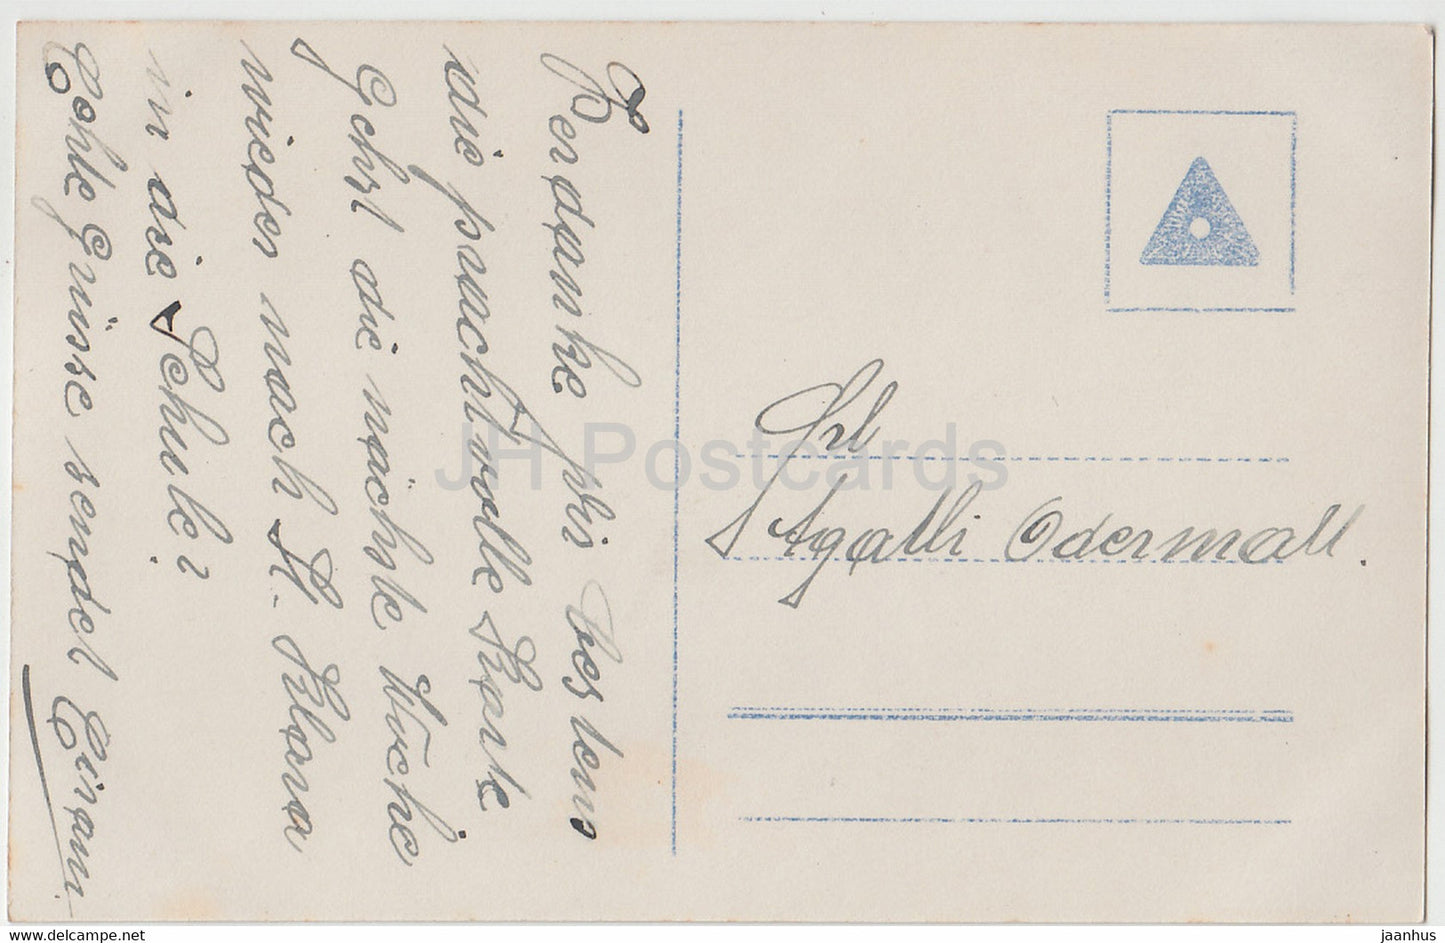 Verdanke bestens
die prachtvolle Karte
Gehst die nächste Woche
wieder nach St. Klara
in die Schule?
Grüsse sendet
Frl
Agathi Odermatt.
JH Postcards
www.delcampe.net
jaanhus